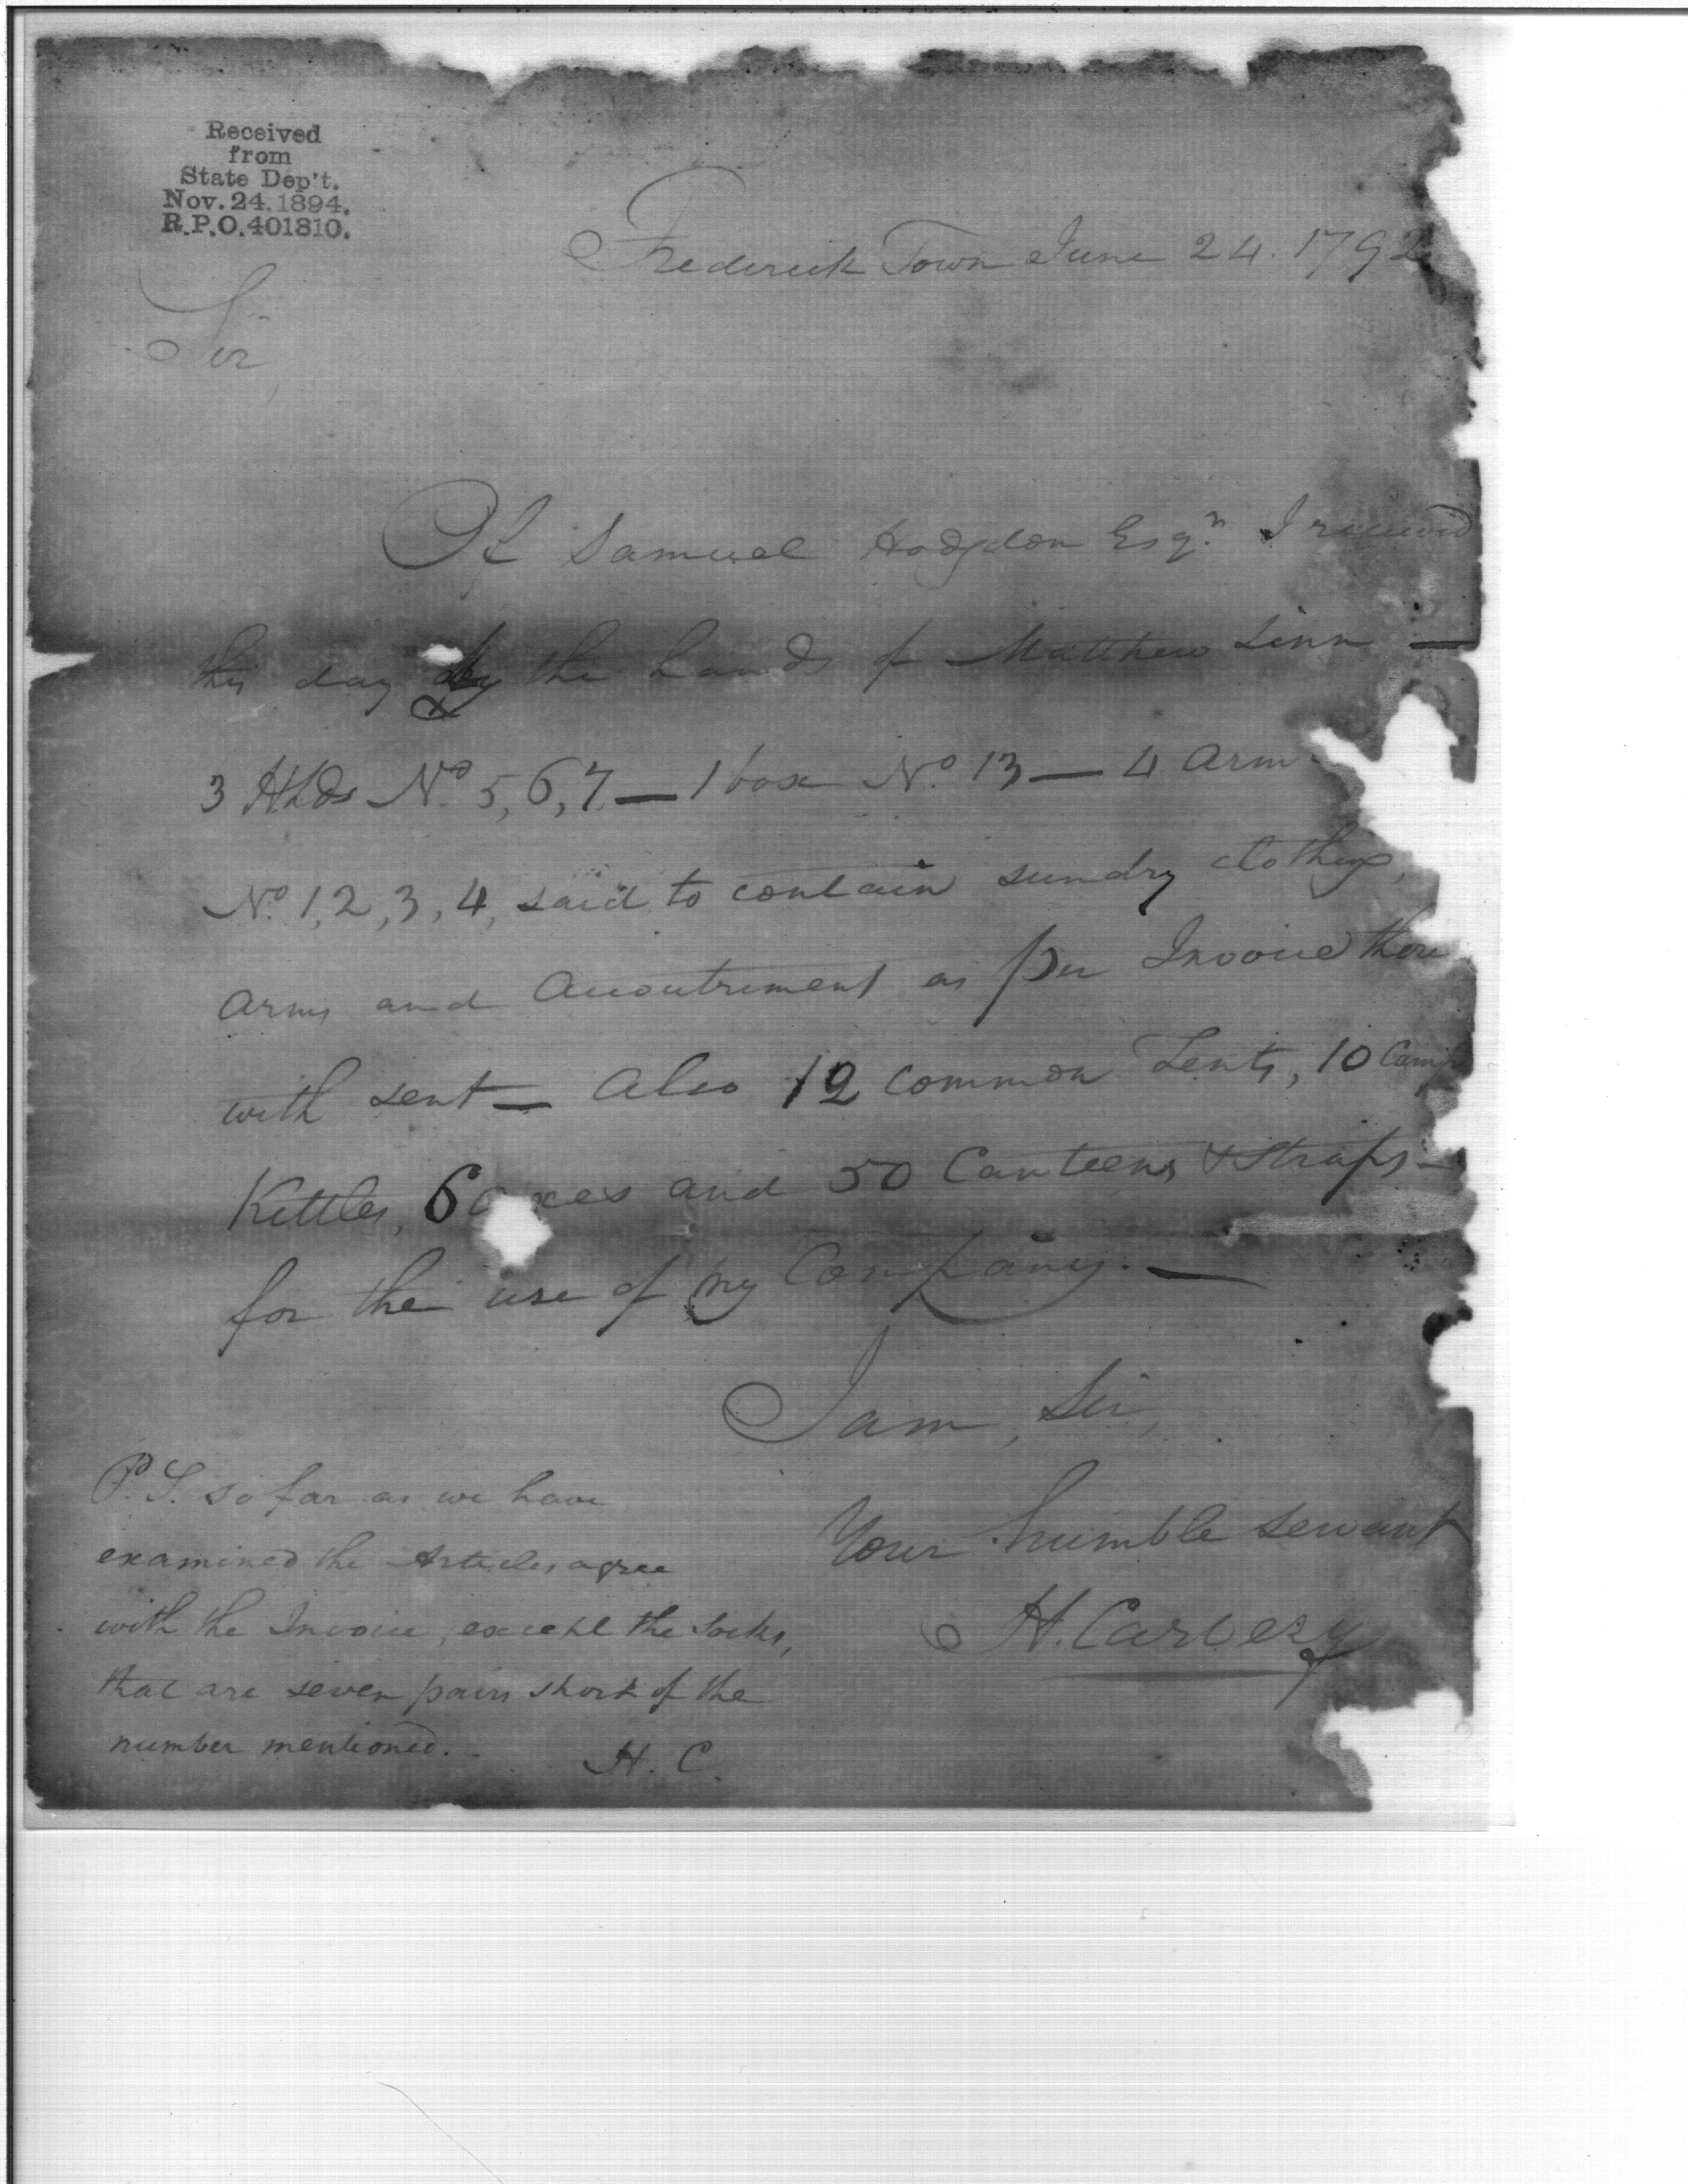 Received
from
State Dep't.
Nov. 24. 1894.
R.P.O. 401810.
Frederick Town June 24. 1792
Sir,
Of Samuel Hodgdon Esqr. I received
this day by the hands of Matthew Linn —
3 Hhds No. 5, 6, 7 — 1 box No. 13 — 4 Arm
No. 1, 2, 3, 4, said to contain sundry clothing,
Arms and Accoutrement as per Invoice there
with sent — Also 12 common Tents, 10 Camp
Kettles, 6 axes and 50 Canteens & Straps —
for the use of my Company. —
I am, Sir,
Your humble servant
H. Carbery
P.S. so far as we have
examined the Articles agree
with the Invoice, except the Socks,
that are seven pairs short of the
number mentioned.
H. C.